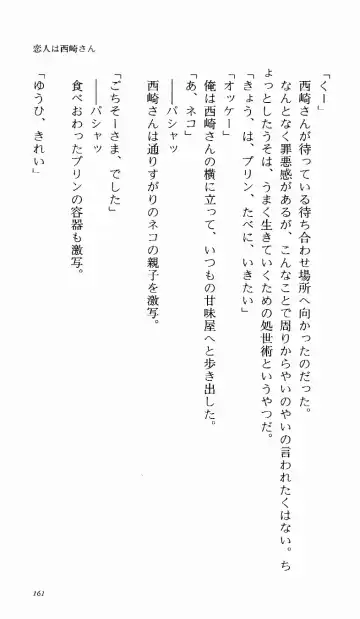 恋人は西崎さん
「くー」
西崎さんが待っている待ち合わせ場所へ向かったのだった。
なんとなく罪悪感があるが、こんなことで周りからやいのやいの言われたくはない。ち
ょっとしたうそは、うまく生きていくための処世術というやつだ。
「きょう、は、プリン、たべに、いきたい」
「オッケー」
俺は西崎さんの横に立って、いつもの甘味屋へと歩き出した。
「あ、ネコ」
――パシャッ
西崎さんは通りすがりのネコの親子を激写。
「ごちそーさま、でした」
――パシャッ
食べおわったプリンの容器も激写。
「ゆうひ、きれい」
161